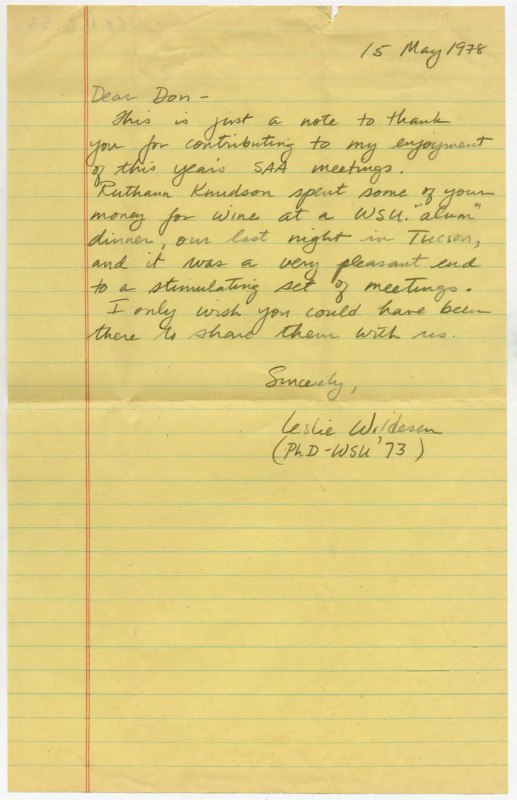 15 May 1978
Dear Don -
This is just a note to thank
you for contributing to my enjoyment
of this year's SAA meetings.
Ruthann Knudson spent some of your
money for wine at a WSU "alum"
dinner, our last night in Tucson,
and it was a very pleasant end
to a stimulating set of meetings.
I only wish you could have been
there to share them with us.
Sincerely,
Leslie Wildesen
(PhD - WSU '73)